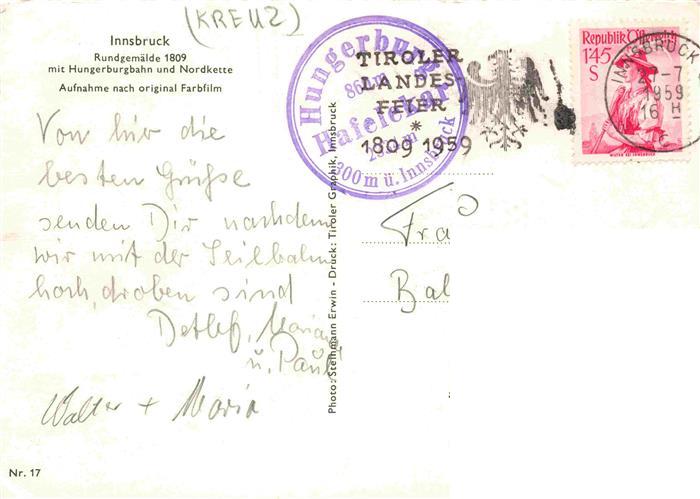 (KREUZ)
Innsbruck
Rundgemälde 1809
mit Hungerburgbahn und Nordkette
Aufnahme nach original Farbfilm
Von hier die
besten Grüße
senden Dir nachdem
wir mit der Seilbahn
hoch droben sind
Detlef, Maria
u. Paul
Walter + Maria
Nr. 17
Photo: Stethmann Erwin - Druck: Tiroler Graphik, Innsbruck
Hungerburg
Hafelekar
300 m ü. Innsbruck
TIROLER
LANDES-
FEIER
*
1809 1959
Republik Österreich
1'45
S
INNSBRUCK
1959
16 H
Fra
Bal